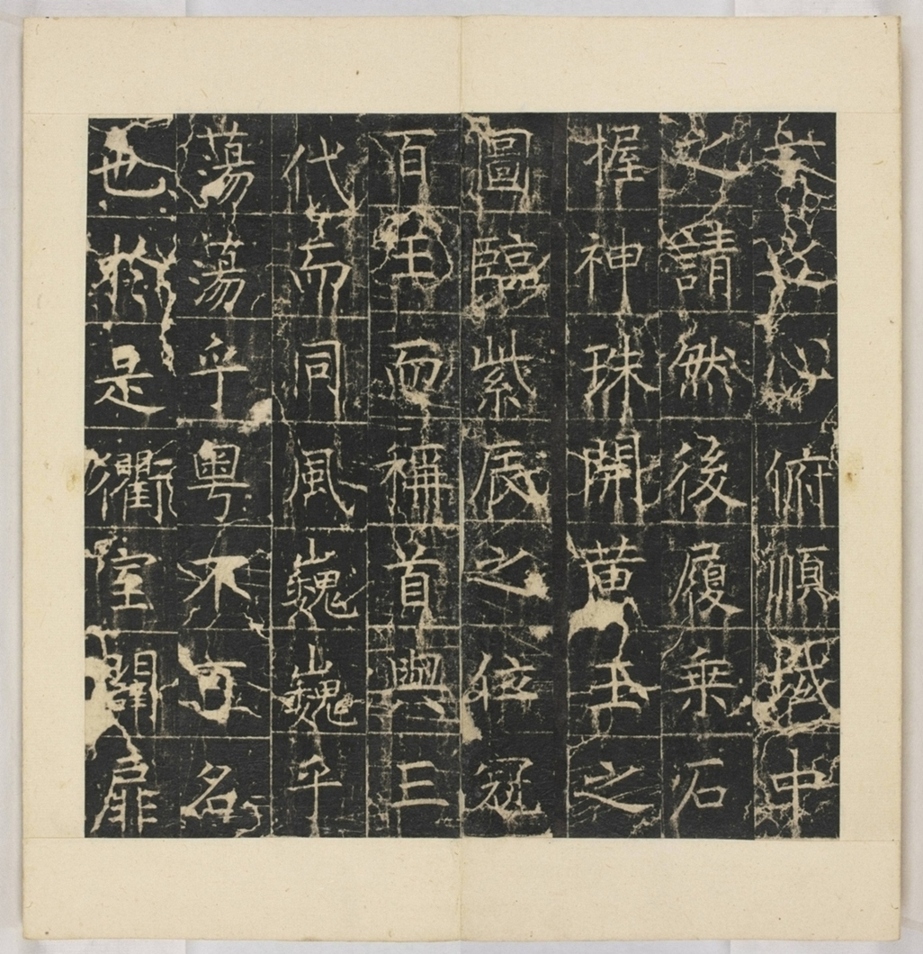 心俯順域中
之請然後履乗石
握神珠開黄玉之
圖臨紫辰之位冠
百王而稱首與三
代而同風巍巍乎
蕩蕩乎粤不可名
也於是衢室闢扉